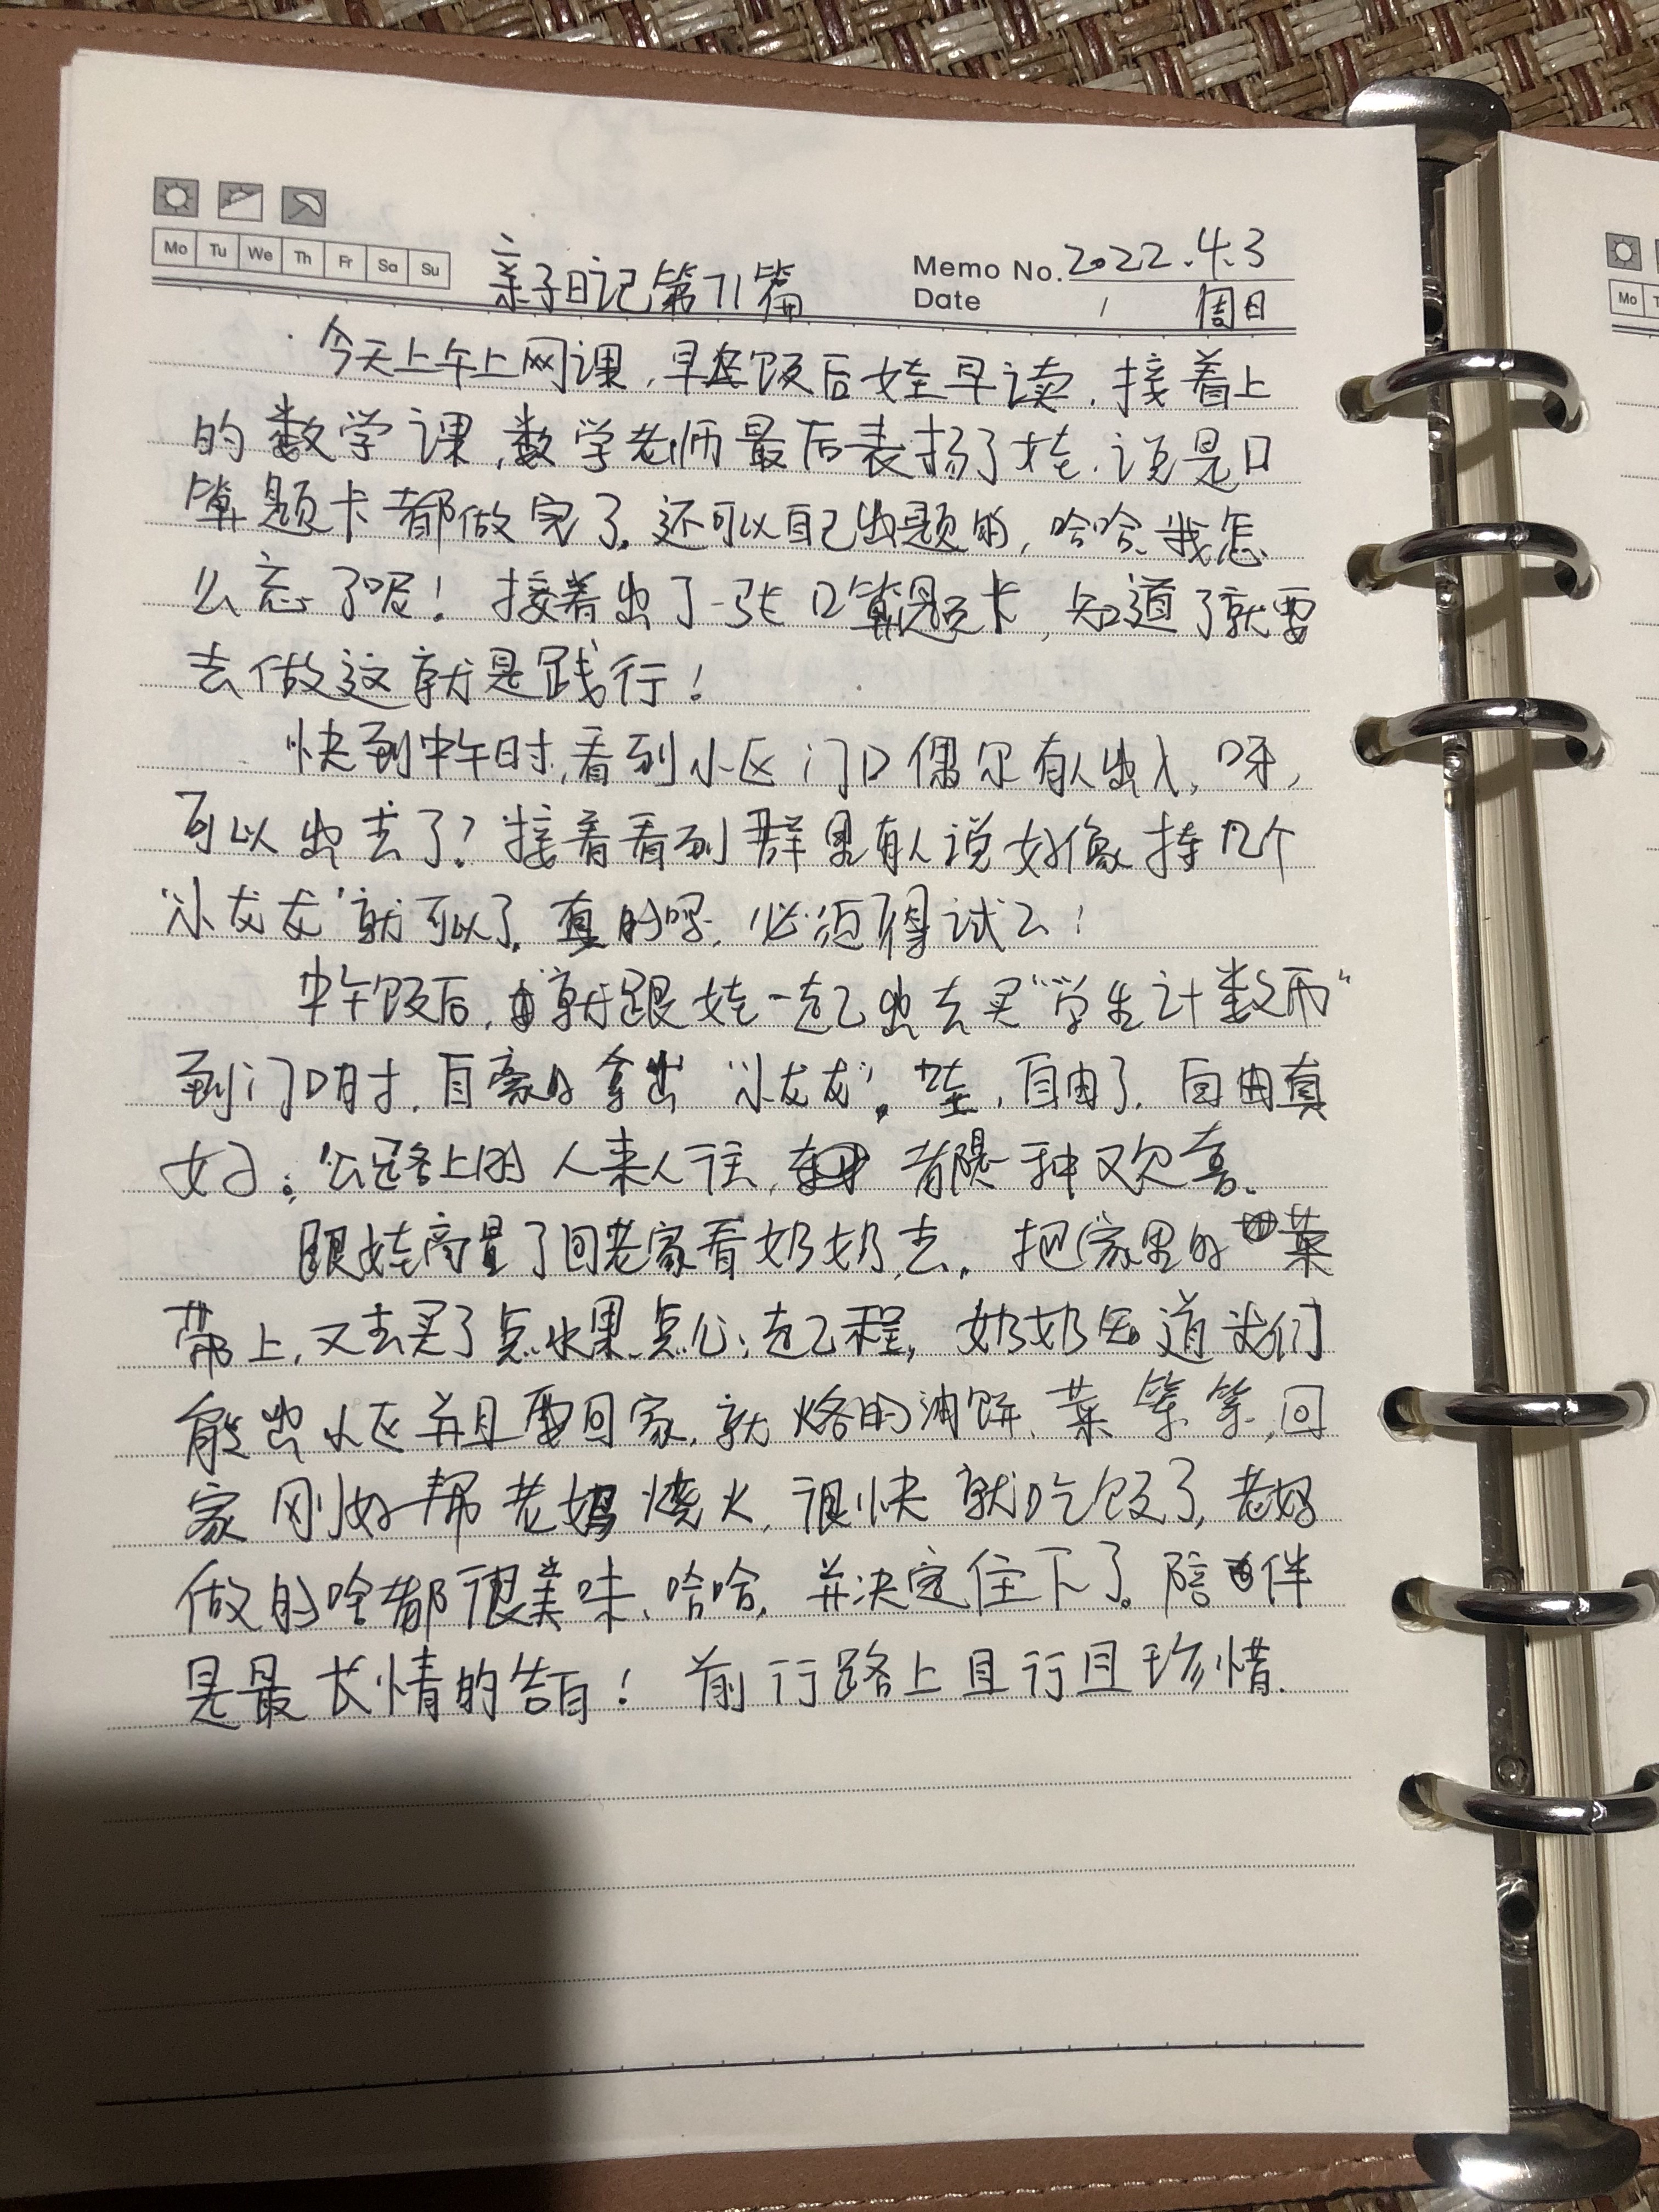 Mo Tu We Th Fr Sa Su
亲子日记第71篇
Memo No. 2022.4.3
Date / 周日
今天上午上网课,早饭后娃早读,接着上
的数学课,数学老师最后表扬了娃,说是口
算题卡都做完了,还可以自己出题的,哈哈,我怎
么忘了呢!接着出了一张口算题卡,知道了就要
去做这就是践行!
快到中午时,看到小区门口偶尔有人出入,呀,
可以出去了?接着看到群里有人说好像持几个
“小龙龙”就可以了,真的吗,必须得试试!
中午饭后,就跟娃一起出去买“学生计数币”
到门口时,自豪的拿出“小龙龙”,哇,自由了,自由真
好;公路上的人来人往,都是一种欢喜.
跟娃商量了回老家看奶奶去,把家里的菜
带上,又去买了点水果、点心;起程,奶奶知道我们
能出小区并且要回家,就烙的油饼、菜等等,回
家刚好帮老妈烧火,很快就吃饭了,老妈
做的啥都很美味、哈哈,并决定住下了。陪伴
是最长情的告白!前行路上且行且珍惜.
Mo